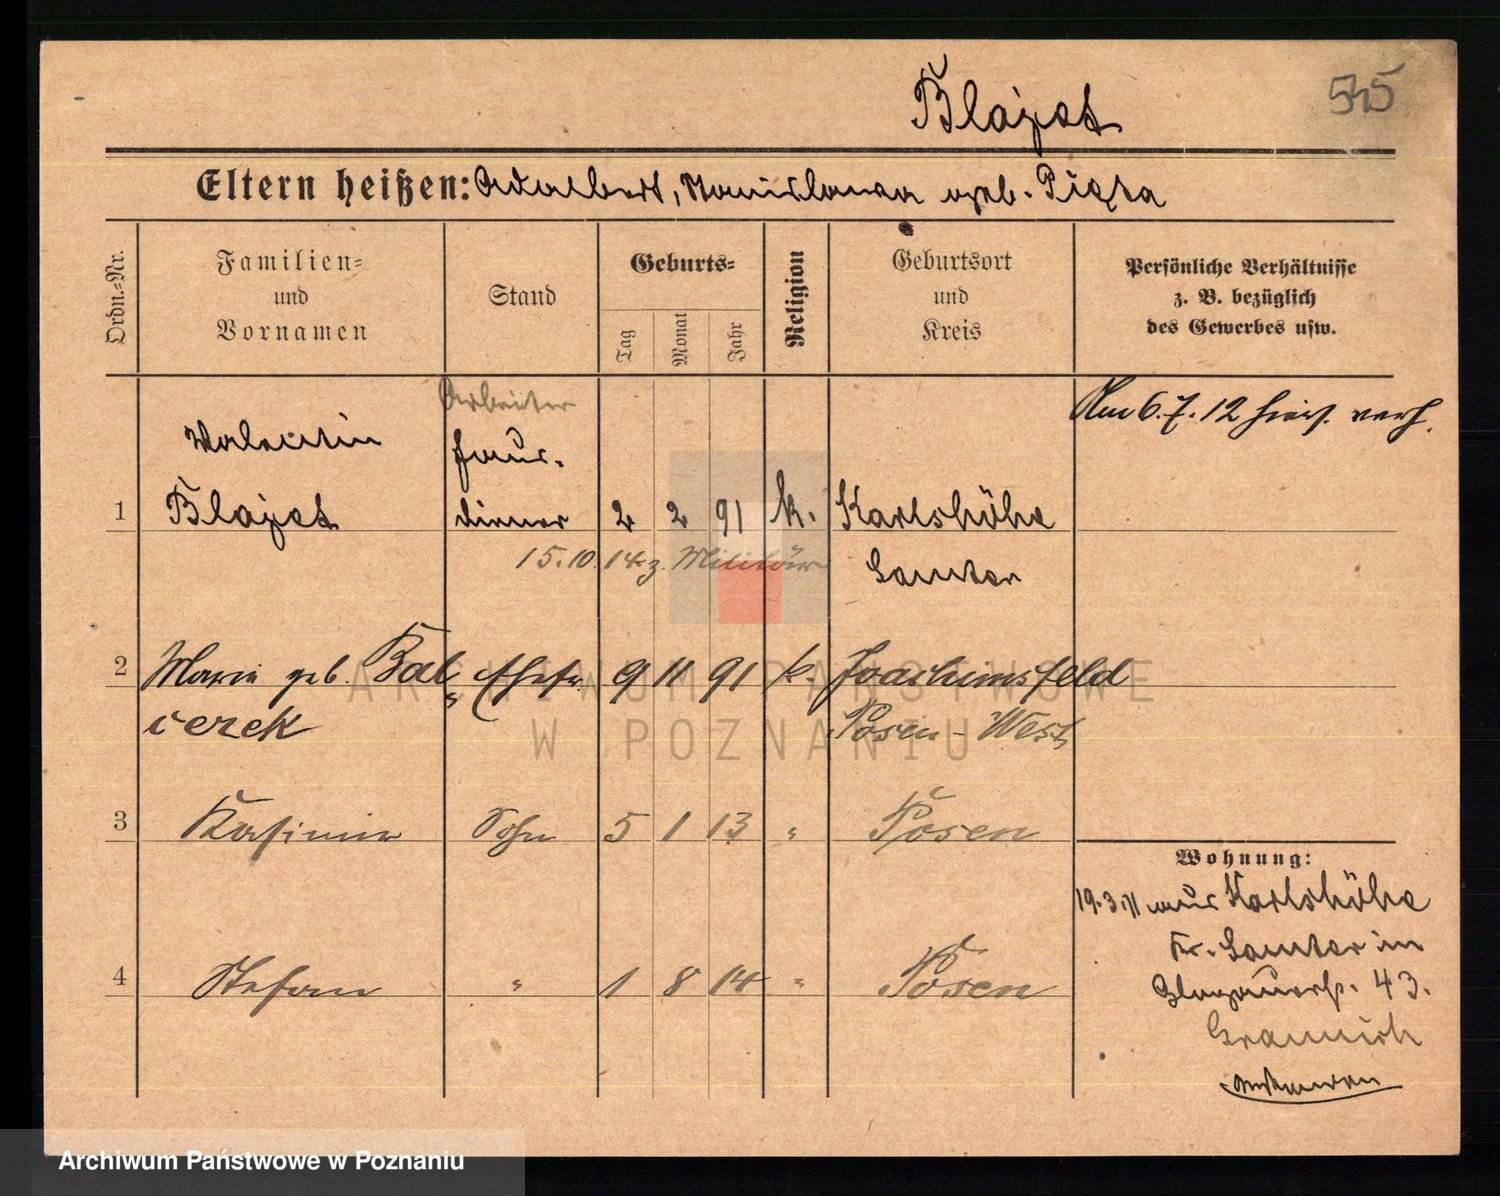 Blajet
545
Eltern heißen: Adalbert, Stanislawa geb. Pięta
Ordn.-Nr.
Familien-
und
Vornamen
Stand
Geburts-
Tag
Monat
Jahr
Religion
Geburtsort
und
Kreis
Persönliche Verhältnisse
z. B. bezüglich
des Gewerbes usw.
Arbeiter
Am 6.7.12 hier verh.
Valentin
Haus-
1 Blajet diener 2 2 91 k. Karlshöhe
15.10.14 z. Militär
Samter
2 Marie geb. Bal Ehefr 9 11 91 k. Joachimsfeld
cerek Posen-West
3 Kasimir Sohn 5 1 13 " Posen
Wohnung:
19.3.11 aus Karlshöhe
Kr. Samter in
4 Stefan " 1 8 14 " Posen
Glogauerstr. 43.
ARCHIWUM PAŃSTWOWE
W POZNANIU
Archiwum Państwowe w Poznaniu